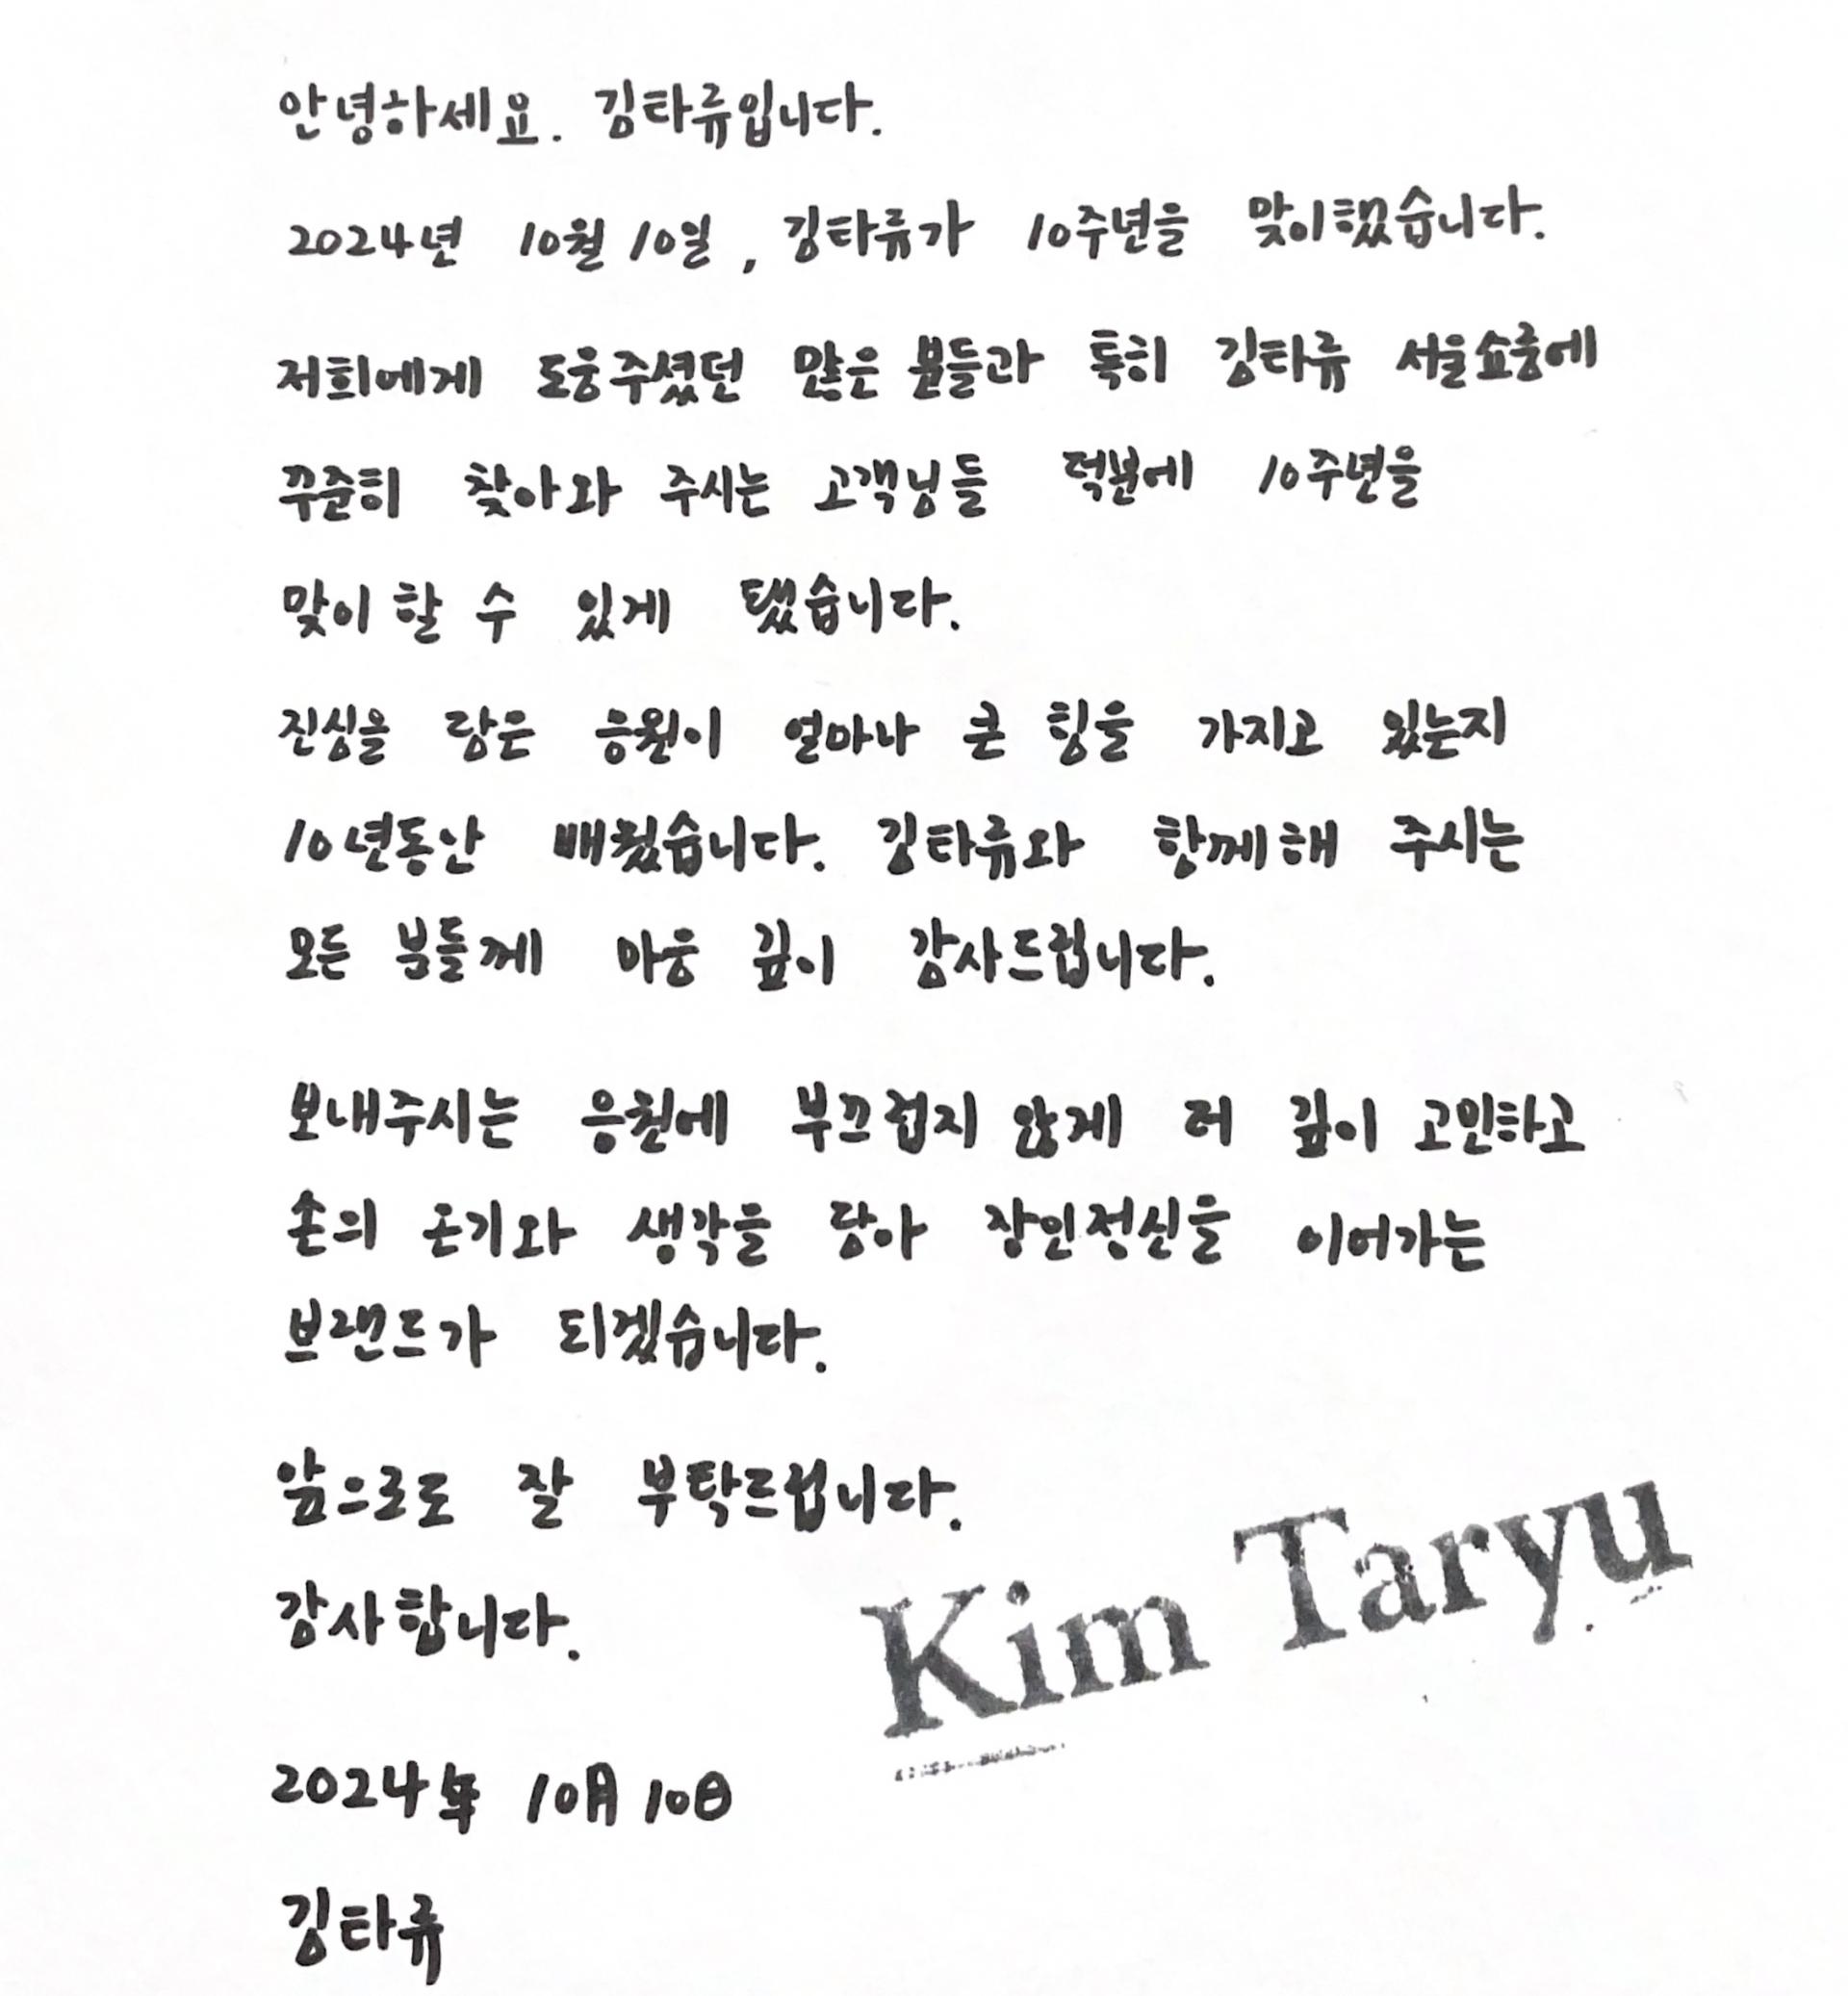 안녕하세요. 김타류입니다.
2024년 10월 10일, 김타류가 10주년을 맞이했습니다.
저희에게 도움주셨던 많은 분들과 특히 김타류 서울쇼룸에
꾸준히 찾아와 주시는 고객님들 덕분에 10주년을
맞이 할 수 있게 됐습니다.
진심을 담은 응원이 얼마나 큰 힘을 가지고 있는지
10년동안 배웠습니다. 김타류와 함께해 주시는
모든 분들께 마음 깊이 감사드립니다.
보내주시는 응원에 부끄럽지 않게 더 깊이 고민하고
손의 온기와 생각을 담아 장인정신을 이어가는
브랜드가 되겠습니다.
앞으로도 잘 부탁드립니다.
감사합니다.
Kim Taryu
2024年 10月 10日
김타류